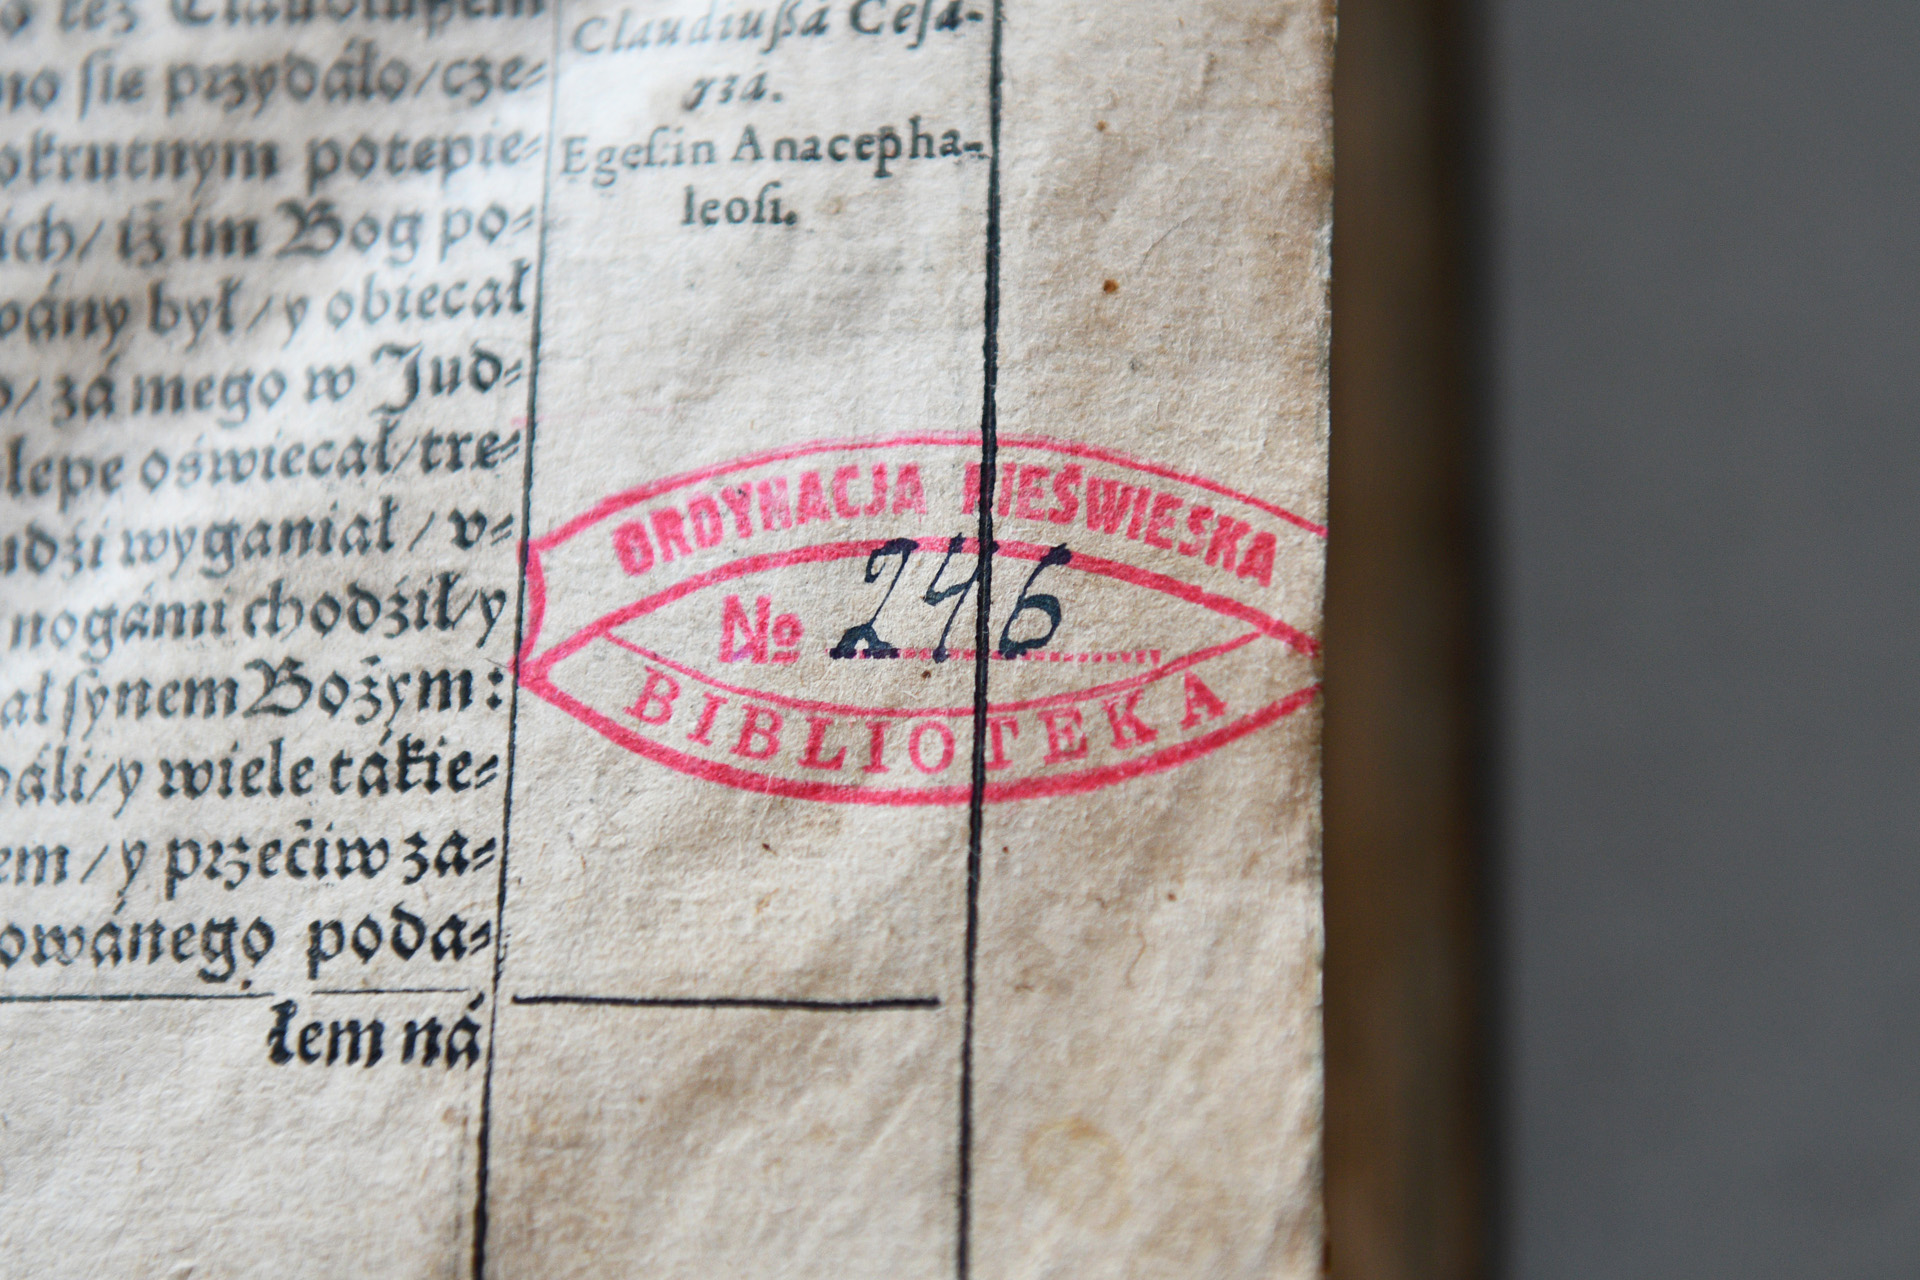 też Claudiuszem
no ſie przydáło/cze⸗
okrutnym potępie⸗
ich/ iż im Bog po⸗
wány był/ y obiecał
o/ zá mego w Jud⸗
ślepe oświecał/tre⸗
udźi wyganiał/ v⸗
nogámi chodźił/y
ał ſynem Bożym:
dáli/y wiele tákie⸗
em/y przećiw za⸗
owánego poda⸗
łem ná
Claudiuſſá Ceſá-
rzá.
Egeſ.in Anacepha-
leoſi.
ORDYNACJA NIEŚWIESKA
№ 246
BIBLIOTEKA